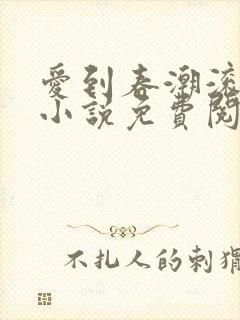 愛到春潮滾
小說免費閱
不扎人的刺猬